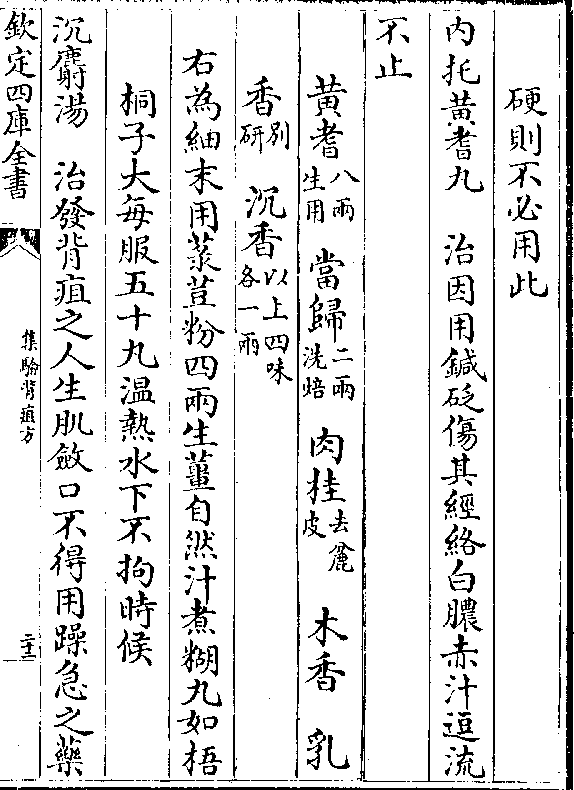 硬則不必用此
内托黄耆丸　治因用鍼砭傷其經絡白膿赤汁逗流
不止
黄耆八兩生用　當歸二兩洗焙　肉桂去麄皮　木香　乳
香别研　沉香以上四味各一兩
右為細末用菉荳粉四兩生薑自然汁煮糊丸如梧
桐子大每服五十丸温熱水下不拘時候
沉麝湯　治發背疽之人生肌斂口不得用躁急之藥
欽定四庫全書
集驗背疽方
二十二